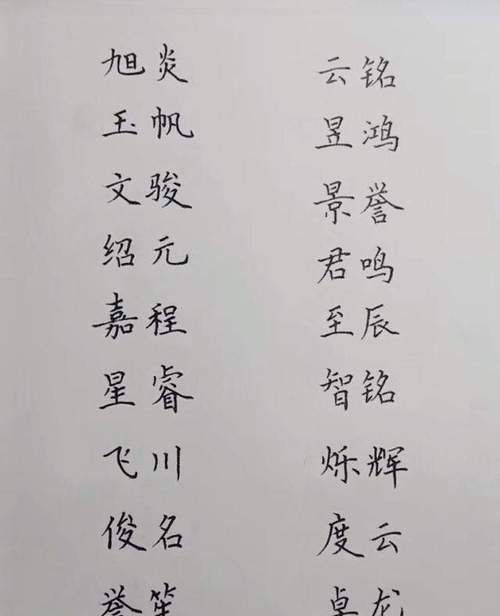 旭炎 云铭
玉帆 昱鸿
文骏 景誉
绍元 君鸣
嘉程 至辰
星睿 智铭
飞川 烁辉
俊名 度云
誉笙 卓龙